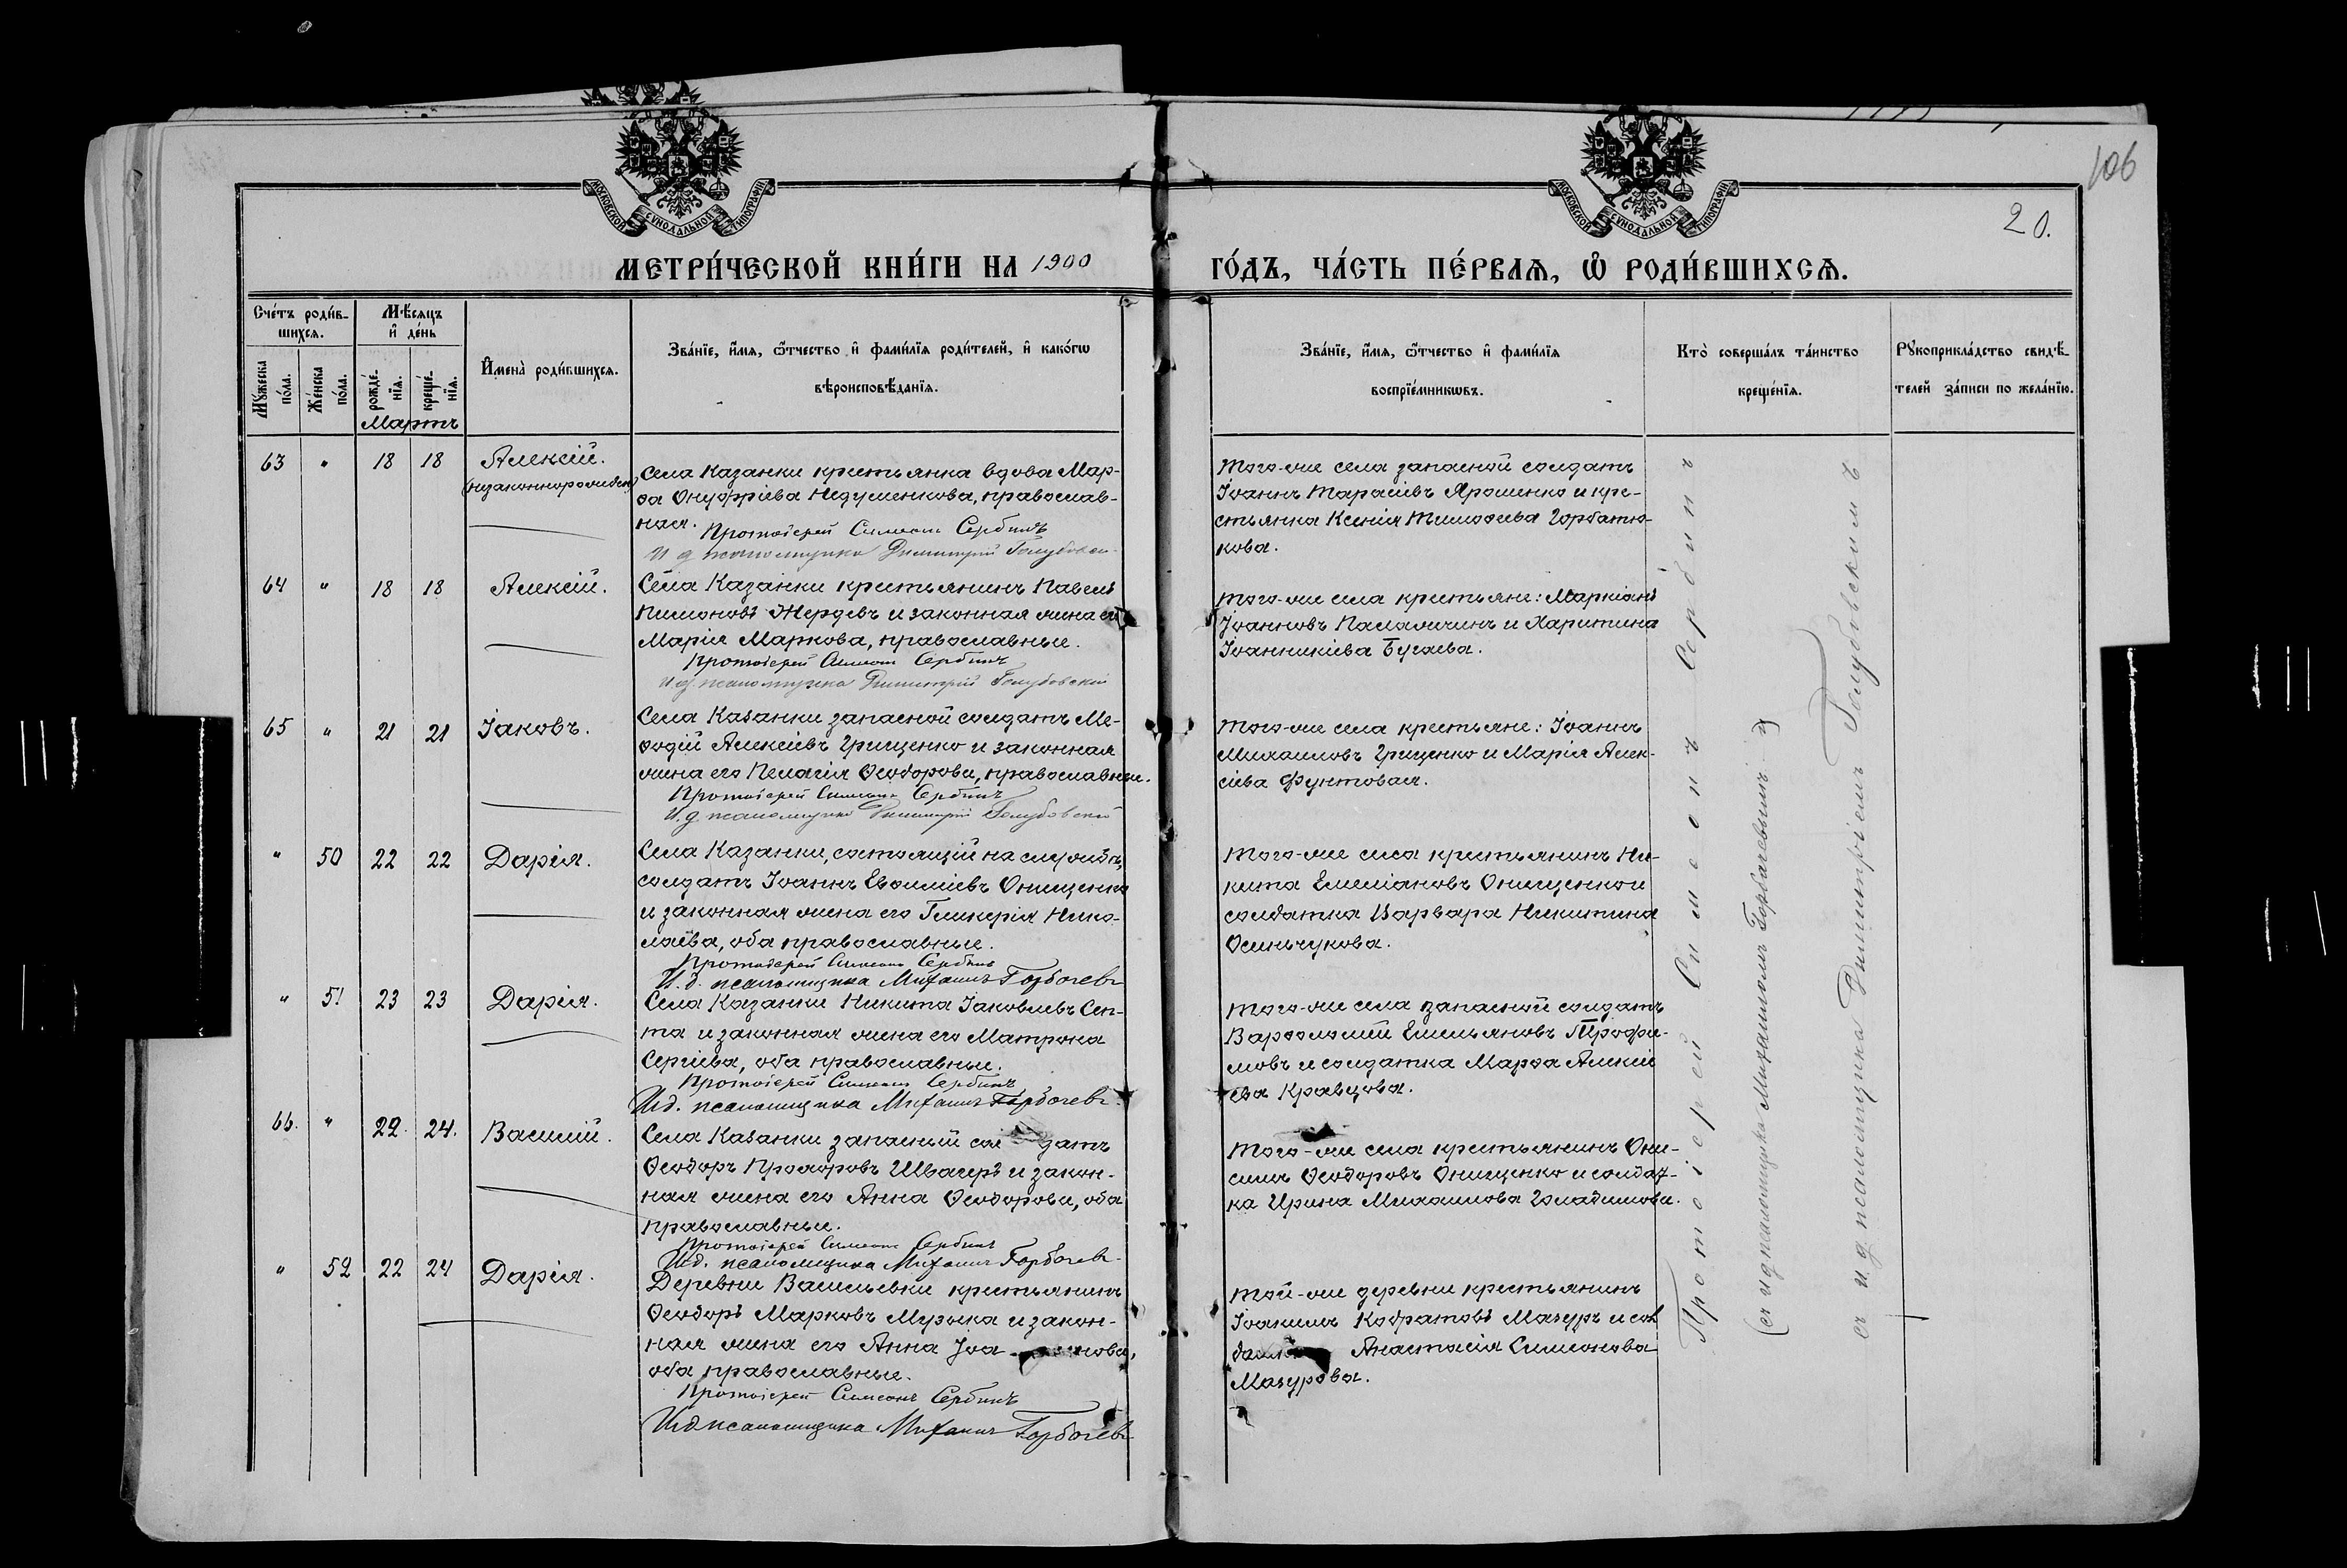 106
20.
МОСКОВСКОЙ СУНОДАЛЬНОЙ ТИПОГРАФІИ
МОСКОВСКОЙ СУНОДАЛЬНОЙ ТИПОГРАФІИ
МЕТРИ́ЧЕСКОЙ КНИ́ГИ НА 1900
ГО́ДЪ, ЧА́СТЬ ПЕ́РВАѦ, Ѽ РОДИ́ВШИХСѦ.
Сче́тъ роди́в-
шихсѧ.
Мꙋ́жеска по́ла.
Же́нска по́ла.
Мѣ́сяцъ
и҆ де́нь
рожде́-нїѧ.
креще́-нїѧ.
Мартъ
И҆мена̀ роди́вшихсѧ.
Зва́нїе, и҆́мѧ, ѻ҆́тчество и҆ фами́лїѧ роди́телей, и҆ како́гѡ
вѣроисповѣ́данїѧ.
Зва́нїе, и҆́мѧ, ѻ҆́тчество и҆ фами́лїѧ
воспрїе́мникѡвъ.
Кто̀ соверша́лъ та́инство
креще́нїѧ.
Рꙋкоприкла́дство свидѣ́-
телей за́писи по жела́нїю.
63 " 18 18 Алексій.
(незаконнорожден)
Села Казанки крестьянка вдова Мар-
ѳа Онуфріева Недуменкова, православ-
ная.
Протоіерей Симеонъ Сербинъ
И д псаломщика Димитрій Голубовск
Того-же села запасной солдатъ
Іоаннъ Тарасіевъ Ярошенко и кре-
стьянка Ксенія Тимоѳеева Горбатю-
кова.
64 " 18 18 Алексій.
Села Казанки крестьянинъ Павелъ
Пимоновъ Жердевъ и законная жена его
Марія Маркова, православные.
Протоіерей Симеонъ Сербинъ
И д. псаломщика Димитрій Голубовскій
Того-же села крестьяне: Маркіанъ
Іоанновъ Паламичинъ и Харитина
Іоанникіева Бугаева.
65 " 21 21 Іаковъ.
Села Казанки запасной солдатъ Ме-
ѳодій Алексіевъ Грищенко и законная
жена его Пелагія Ѳеодорова, православные.
Протоіерей Симеонъ Сербинъ
И. д. псаломщика Димитрій Голубовскій
Того-же села крестьяне: Іоаннъ
Михаиловъ Грищенко и Марія Алек-
сіева Фунтовая.
" 50 22 22 Дарія.
Села Казанки, состоящій на службѣ,
солдатъ Іоаннъ Евѳиміевъ Онищенко
и законная жена его Гликерія Нико-
лаева, оба православные.
Протоіерей Симеонъ Сербинъ
И. д. псаломщика Михаилъ Горбачевъ
Того-же села крестьянинъ Ни-
кита Емеліановъ Онищенко и
солдатка Варвара Никитина
Осиньчукова.
" 51 23 23 Дарія.
Села Казанки Никита Іаковлевъ Сеп-
та и законная жена его Матрона
Сергіева, оба православные.
Протоіерей Симеонъ Сербинъ
И.д. псаломщика Михаилъ Горбачевъ.
Того-же села запасной солдатъ
Варѳоломій Емельяновъ Трофи-
мовъ и солдатка Марѳа Алексіе
ева Кравцова.
66. " 22. 24. Василій.
Села Казанки запасный солдатъ
Ѳеодоръ Прохоровъ Швагеръ и закон-
ная жена его Анна Ѳеодорова, оба
православные.
Протоіерей Симеонъ Сербинъ
И.д. псаломщика Михаилъ Горбачевъ
Того-же села крестьянинъ Они-
симъ Ѳеодоровъ Онищенко и солдат-
ка Ирина Михаилова
" 52 22 24 Дарія.
Деревни Васильевки крестьянинъ
Ѳеодоръ Марковъ Мурыка и закон-
ная жена его Анна Іоа нова,
оба православные.
Протоіерей Симеонъ Сербинъ
И.д псаломщика Михаилъ Горбачевъ
Той-же деревни крестьянинъ
Іоакимъ Кодратовъ Мазуръ и сол
датка Анастасія Симеонова
Мазурова.
Протоіерей Симеонъ Сербинъ
(съ и д псаломщика Михаиломъ Горбачевымъ)
съ и. д. псаломщика Димитріемъ Голубовскимъ